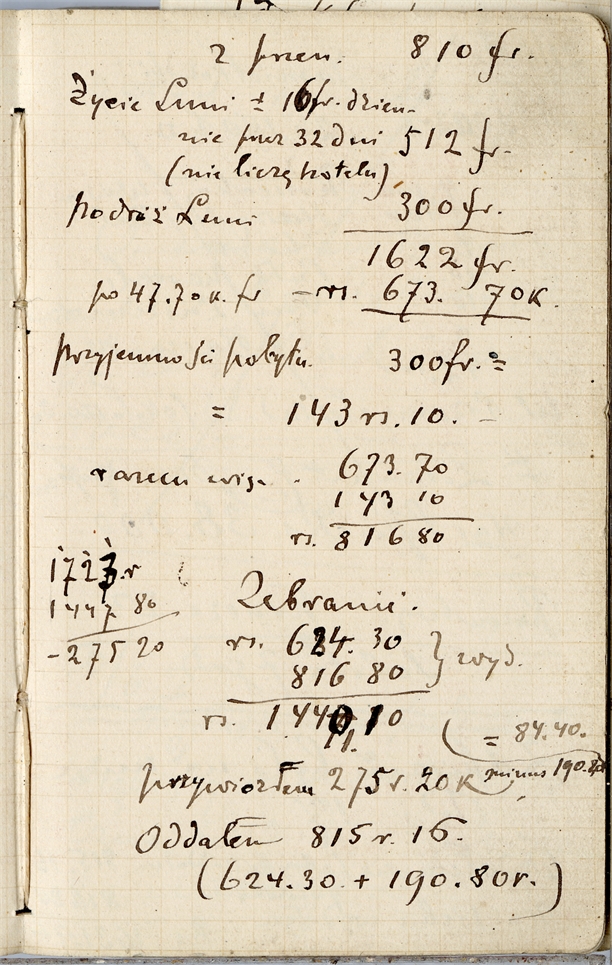 z przen. 810 fr.
Życie Luni ± 16 fr. dzien.
nie przez 32 dni 512 fr.
(nie licząc hotelu)
Podróż Luni 300 fr.
1622 fr.
po 47.70 k. fr – rs. 673. 70 k.
Przyjemności pobytu. 300 fr. =
= 143 rs. 10. –
razem więc . 673. 70
143 10
rs. 816 80
1723 r
1447 80
-275 20
Zebranie.
rs. 624. 30
816 80
} wyd.
rs. 1440 10
11.
( = 84.40.
minus 190.80
przywiozłem 275 r. 20 k
Oddałem 815 r. 16.
(624.30. + 190.80 r.)